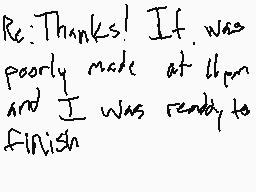 Re: Thanks! It was
poorly made at 11pm
and I was ready to
finish